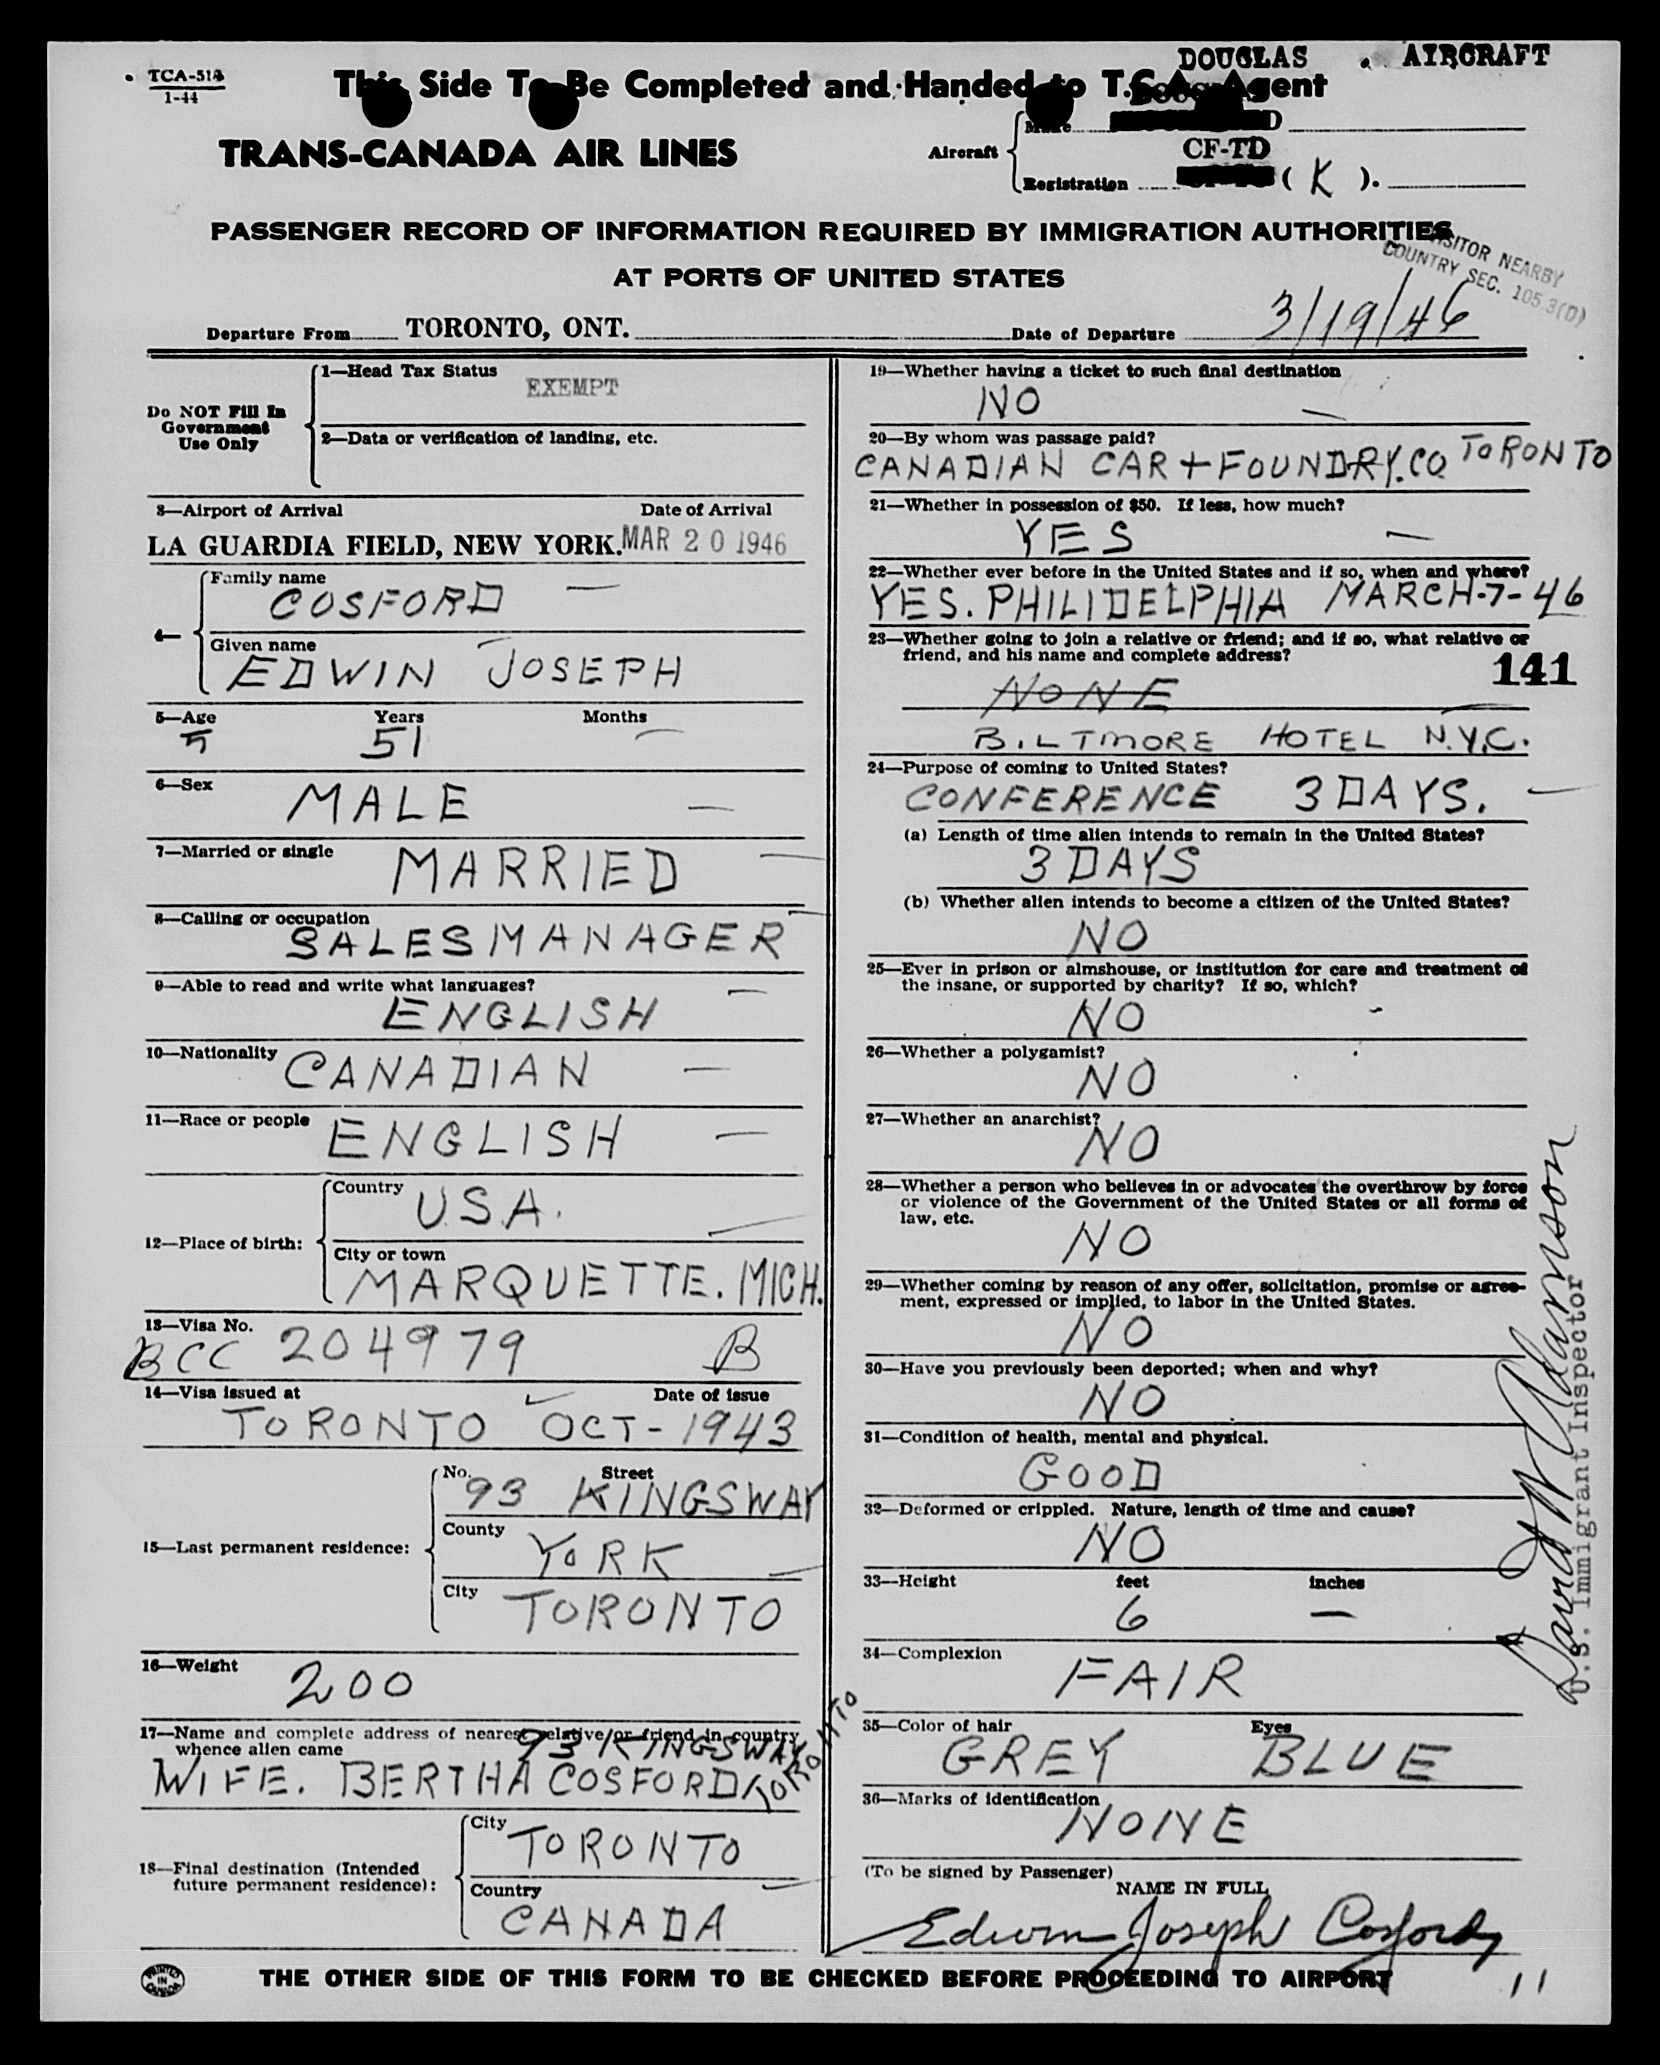 TCA-518
1-44
DOUGLAS AIRCRAFT
This Side To Be Completed and Handed to T.C.A. Agent
TRANS-CANADA AIR LINES
Aircraft
Make
CF-TD
Registration ( K ).
PASSENGER RECORD OF INFORMATION REQUIRED BY IMMIGRATION AUTHORITIES
AT PORTS OF UNITED STATES
VISITOR NEARBY
COUNTRY SEC. 105.3(D)
Departure From TORONTO, ONT. Date of Departure 3/19/46
Do NOT Fill In
Government
Use Only
1—Head Tax Status
EXEMPT
2—Data or verification of landing, etc.
3—Airport of Arrival Date of Arrival
LA GUARDIA FIELD, NEW YORK. MAR 20 1946
4—
Family name
COSFORD —
Given name
EDWIN JOSEPH
5—Age Years Months
51 —
6—Sex
MALE —
7—Married or single
MARRIED —
8—Calling or occupation
SALES MANAGER
9—Able to read and write what languages?
ENGLISH —
10—Nationality
CANADIAN —
11—Race or people
ENGLISH —
12—Place of birth:
Country
U.S.A.
City or town
MARQUETTE. MICH.
13—Visa No.
BCC 204979 B
14—Visa issued at Date of issue
TORONTO OCT-1943
15—Last permanent residence:
No. Street
93 KINGSWAY
County
YORK
City
TORONTO
16—Weight
200
17—Name and complete address of nearest relative/or friend in country
whence alien came
93 KINGSWAY
WIFE. BERTHA COSFORD TORONTO
18—Final destination (Intended
future permanent residence):
City
TORONTO
Country
CANADA
19—Whether having a ticket to such final destination
NO —
20—By whom was passage paid?
CANADIAN CAR + FOUNDRY. CO TORONTO
21—Whether in possession of $50. If less, how much?
YES —
22—Whether ever before in the United States and if so, when and where?
YES. PHILIDELPHIA MARCH-7-46
23—Whether going to join a relative or friend; and if so, what relative or
friend, and his name and complete address?
141
NONE
BILTMORE HOTEL N.Y.C.
24—Purpose of coming to United States?
CONFERENCE 3 DAYS.
(a) Length of time alien intends to remain in the United States?
3 DAYS
(b) Whether alien intends to become a citizen of the United States?
NO
25—Ever in prison or almshouse, or institution for care and treatment of
the insane, or supported by charity? If so, which?
NO
26—Whether a polygamist?
NO
27—Whether an anarchist?
NO
28—Whether a person who believes in or advocates the overthrow by force
or violence of the Government of the United States or all forms of
law, etc.
NO
29—Whether coming by reason of any offer, solicitation, promise or agree-
ment, expressed or implied, to labor in the United States.
NO
30—Have you previously been deported; when and why?
NO
31—Condition of health, mental and physical.
GOOD
32—Deformed or crippled. Nature, length of time and cause?
NO
33—Height feet inches
6 —
34—Complexion
FAIR
35—Color of hair Eyes
GREY BLUE
36—Marks of identification
NONE
(To be signed by Passenger)
NAME IN FULL
Edwin Joseph Cosford
David W Adamson
U.S. Immigrant Inspector
PRINTED IN CANADA
THE OTHER SIDE OF THIS FORM TO BE CHECKED BEFORE PROCEEDING TO AIRPORT
11